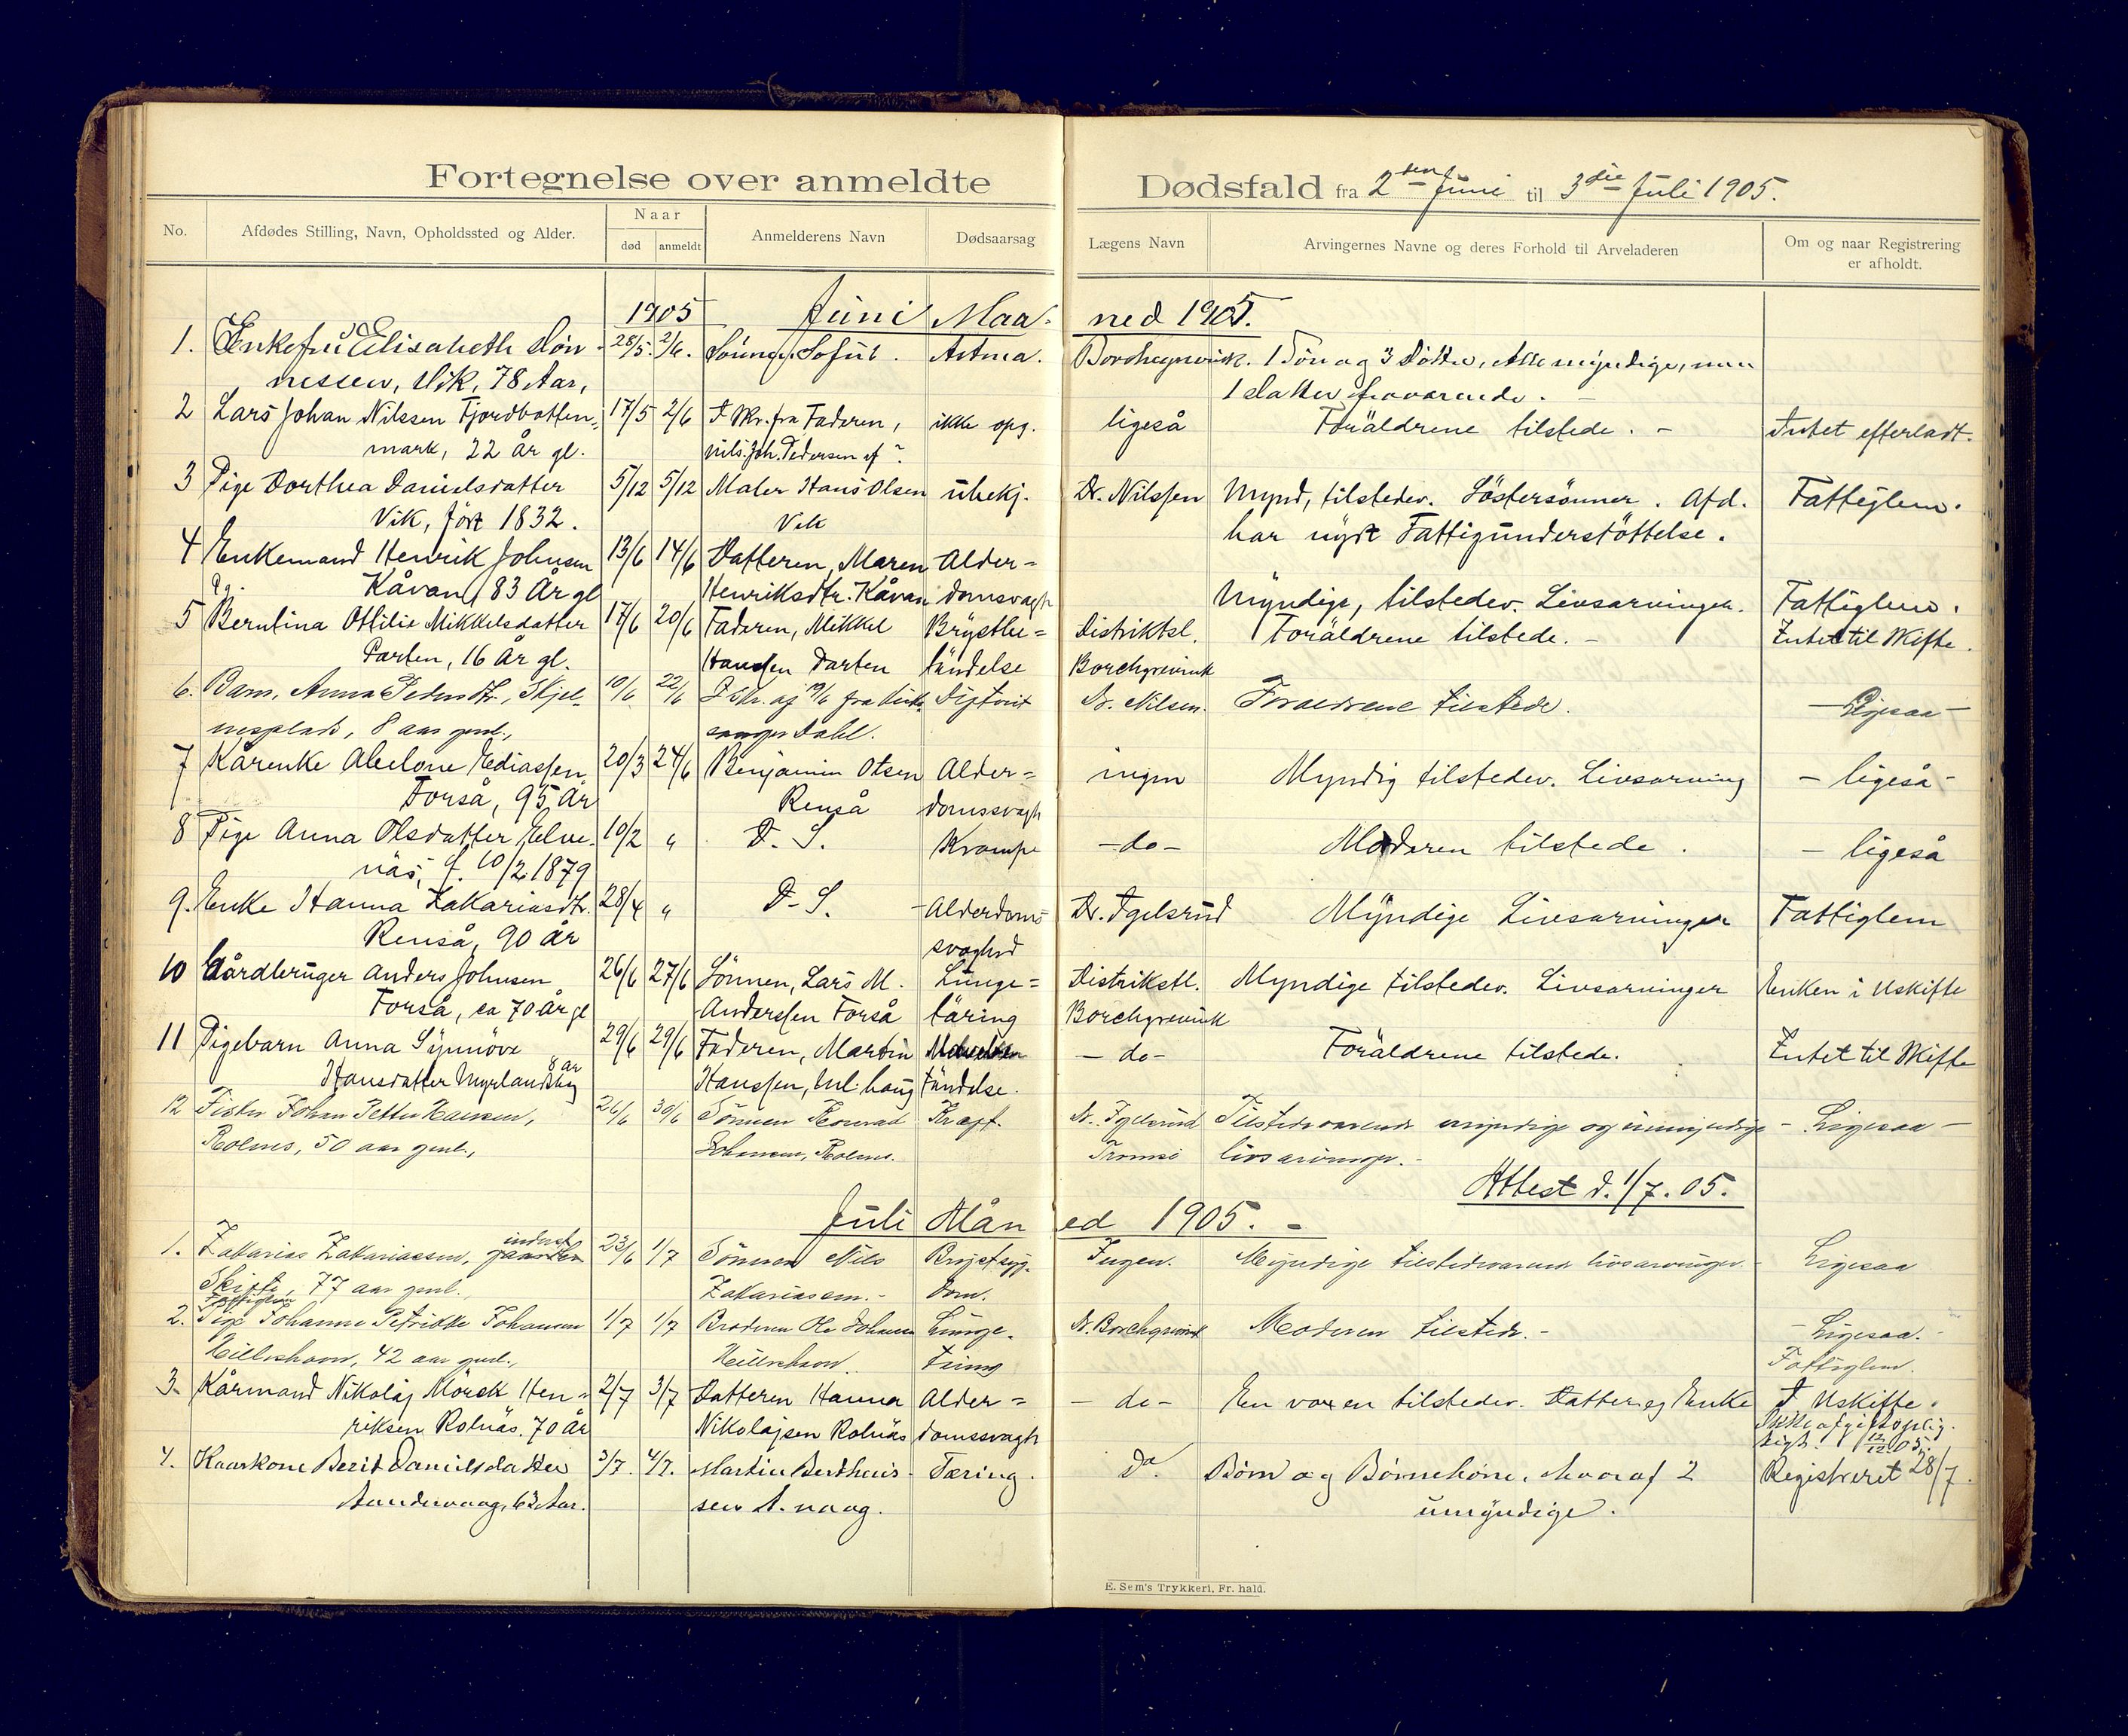 Fortegnelse over anmeldte Dødsfald fra 2den Juni til 3die Juli 1905.
No. Afdødes Stilling, Navn, Opholdssted og Alder. Naar død anmeldt Anmelderens Navn Dødsaarsag Lægens Navn Arvingernes Navne og deres Forhold til Arveladeren Om og naar Registrering er afholdt.
1905 Juni Maa- ned 1905.
1. Enkefru Elisabeth Høn- 28/5. 2/6. Sønnen Sofus. Astma. Borchgrevink. 1 Søn og 3 Døttre, Alle myndige, men
nessen, Vik, 78 Aar, 1 Datter fraværende. -
2 Lars Johan Nilssen Fjordbotten- 17/5 2/6 D. Skr. fra Faderen, ikke opg. ligeså Foräldrene tilstede. - Intet efterladt.
mark, 22 År gl. Nils Joh. Pedersen af ?
3 Pige Dorthea Danielsdatter 5/12 5/12 Maler Hans Olsen ubekj. Dr. Nilssen Mynd, tilstedev. Söstersönner. Afd. Fattiglem.
Vik, født 1832. Vik har nydt Fattigunderstöttelse.
4 Enkemand Henrik Johnsen 13/6 14/6 Datteren, Maren Alder=
Kåvan, 83 År gl Henriksdtr. Kåvan domsvagh Myndige, tilstedev. Livsarvinger. Fattiglem.
5 Pg. Berntina Ottilie Mikkelsdatter 17/6 20/6 Faderen, Mikkel Brystbe= Distriktsl. Foräldrene tilstede. - Intet til Skifte.
Parten, 16 År gl. Hanssen Parten tändelse Borchgrevink
6. Barn, Anna Pedersdtr., Skjel- 10/6 22/6 D. Skr. af 19/6 fra Kirke- Difterit Dr. Nilsen. Forældrene tilstede. - Ligesaa -
nesplads, 8 aar gml., sanger Dahl.
7 Kårenke Abelone Ediassen 20/3 24/6 Benjamin Olsen Alder= ingen Myndig tilstedev. Livsarving - ligeså -
Forså, 95 År Renså domssvagh
8 Pige Anna Olsdatter Elve- 10/2 " D. S. Krampe - do - Moderen tilstede. - ligeså
näs, f. 10/2 1879
9. Enke Hanna Zakariasdtr. 28/4 " D. S. Alderdoms- Dr. Igelsrud Myndige Livsarvinger Fattiglem
Renså, 90 år svaghed
10 Gårdbruger Anders Johnsen 26/6 27/6 Sönnen, Lars M. Lunge= Distriksl. Myndige tilstedev. Livsarvinger Enken i Uskifte
Forså, ca 70 år gl Anderssen Forså täring Borchgrevink
11 Pigebarn Anna Synnöve 29/6 29/6 Faderen, Martin - do - Foräldrene tilstede. Intet til Skifte
Hansdatter Myrlandshg 8 år Hanssen, tändelse.
12 Fisker Johan Petter Hansen, 26/6 30/6 Sønnen Konrad Kræft. Dr. Igelsrud Tilstedeværende myndige og umyndige - Ligesaa -
Rolnes, 50 aar gml., Johansen, Rolnes. Tromsø livsarvinger. -
Attest d. 1/7. 05.
Juli Mån ed 1905. -
1. Zakarias Zakariassen, inderst 23/6 1/7 Sønnen Nils Brystsyg- Ingen. Myndige tilstedeværende livsarvinger. Ligesaa
77 aar gml. Zakariassen. - dom.
2. Fattiglem Pige Johanne Petrikke Johansen 1/7 1/7 Broderen Ole Johansen Lunge- Dr. Borchgrevink Moderen tilstede. - - Ligesaa. -
42 aar gml., tæring Fattiglem.
3. Kårmand Nikolaj Mörch Hen- 2/7 3/7 Datteren Hanna Alder= - do - En voxen tilstedev. Datter og Enke I Uskifte.
riksen Rolnäs. 70 år Nikolajsen Rolnäs domssvagh Ikke afgiftspligtigt. 12/12 05.
4. Kaarkone Berit Danielsdatter 3/7. 4/7. Martin Berthius- Tæring. Do. Børn og Børnebørn, hvoraf 2 Registreret 28/7.
Sandervaag, 63 Aar. sen S. vaag. umyndige.
E. Sem's Trykkeri, Fr. hald.